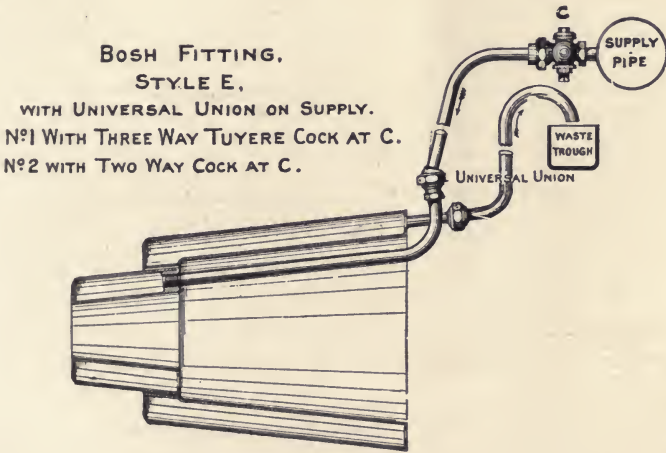 BOSH FITTING,
STYLE E,
WITH UNIVERSAL UNION ON SUPPLY.
Nº1 WITH THREE WAY TUYERE COCK AT C.
Nº2 WITH TWO WAY COCK AT C.
C
SUPPLY
PIPE
WASTE
TROUGH
UNIVERSAL UNION